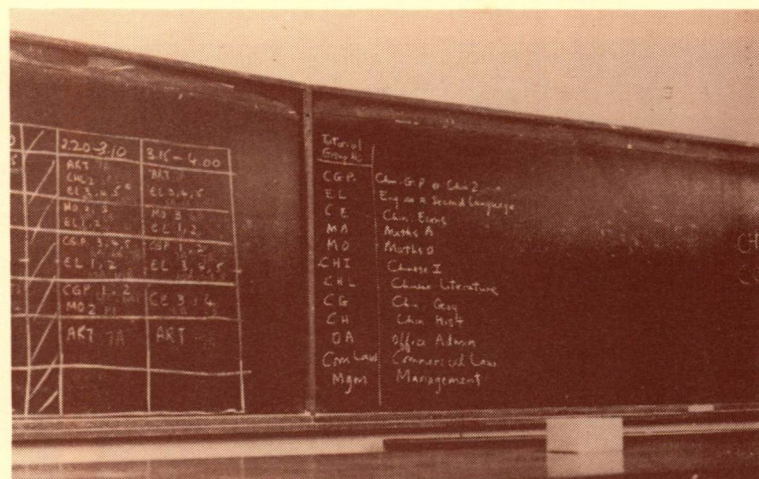 2.20-3.10 3.15-4.00
ART ART
CHL 2
EL 3,4,5 EL 3,4,5
MO 2,3 MO 3
EL 1,2 EL 1,2
CGP 3,4,5 CGP 1,2
EL 1,2 EL 3,4,5
CGP 1,2 CE 3,4
MO2
ART 7A ART
Tutorial
Group No
CGP. Chin. G.P or Chin 2
EL Eng as a Second Language
CE Chin. Econs
MA Maths A
MO Maths O
CHI Chinese I
CHL Chinese Literature
CG Chin. Geog
CH Chin Hist
OA Office Admin
Com Law Commercial Law
Mgm Management
CH